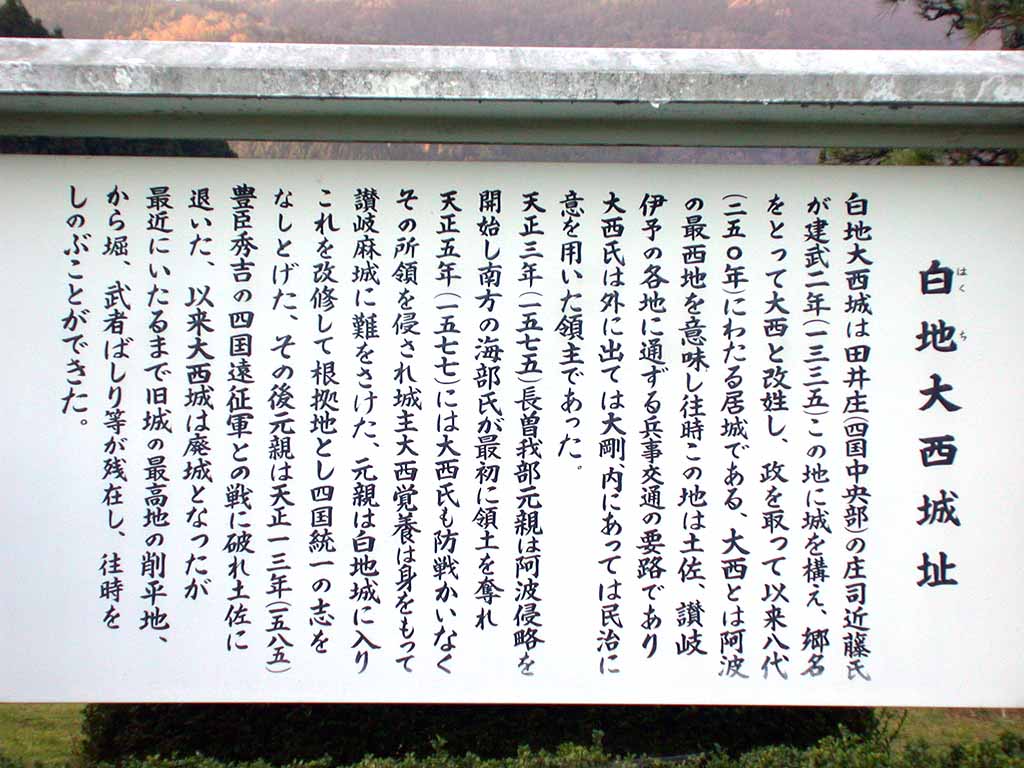 白地大西城址
はくち
白地大西城は田井庄(四国中央部)の庄司近藤氏
が建武二年(一三三五)この地に城を構え、郷名
をとって大西と改姓し、政を取って以来八代
(二五〇年)にわたる居城である、大西とは阿波
の最西地を意味し往時この地は土佐、讃岐
伊予の各地に通ずる兵事交通の要路であり
大西氏は外に出ては大剛、内にあっては民治に
意を用いた領主であった。
天正三年(一五七五)長曽我部元親は阿波侵略を
開始し南方の海部氏が最初に領土を奪れ
天正五年(一五七七)には大西氏も防戦かいなく
その所領を侵され城主大西覚養は身をもって
讃岐麻城に難をさけた、元親は白地城に入り
これを改修して根拠地とし四国統一の志を
なしとげた、その後元親は天正一三年(一五八五)
豊臣秀吉の四国遠征軍との戦に破れ土佐に
退いた、以来大西城は廃城となったが
最近にいたるまで旧城の最高地の削平地、
から堀、武者ばしり等が残在し、往時を
しのぶことができた。